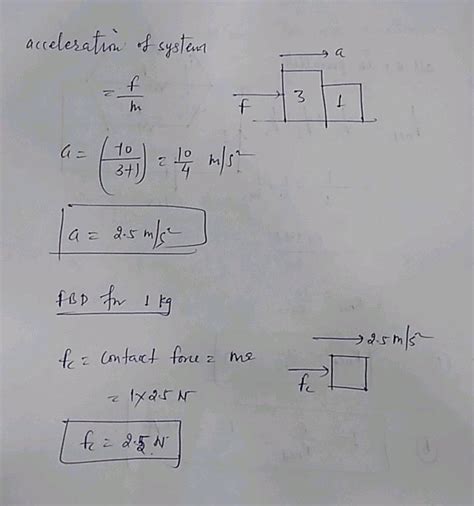 acceleration of system
= f/m
→ a
F
3
1
a = (10/3+1) = 10/4 m/s²
a = 2.5 m/s²
FBD for 1 kg
fc = contact force = ma
= 1×2.5 N
fc = 2.5 N
→ 2.5 m/s²
fc